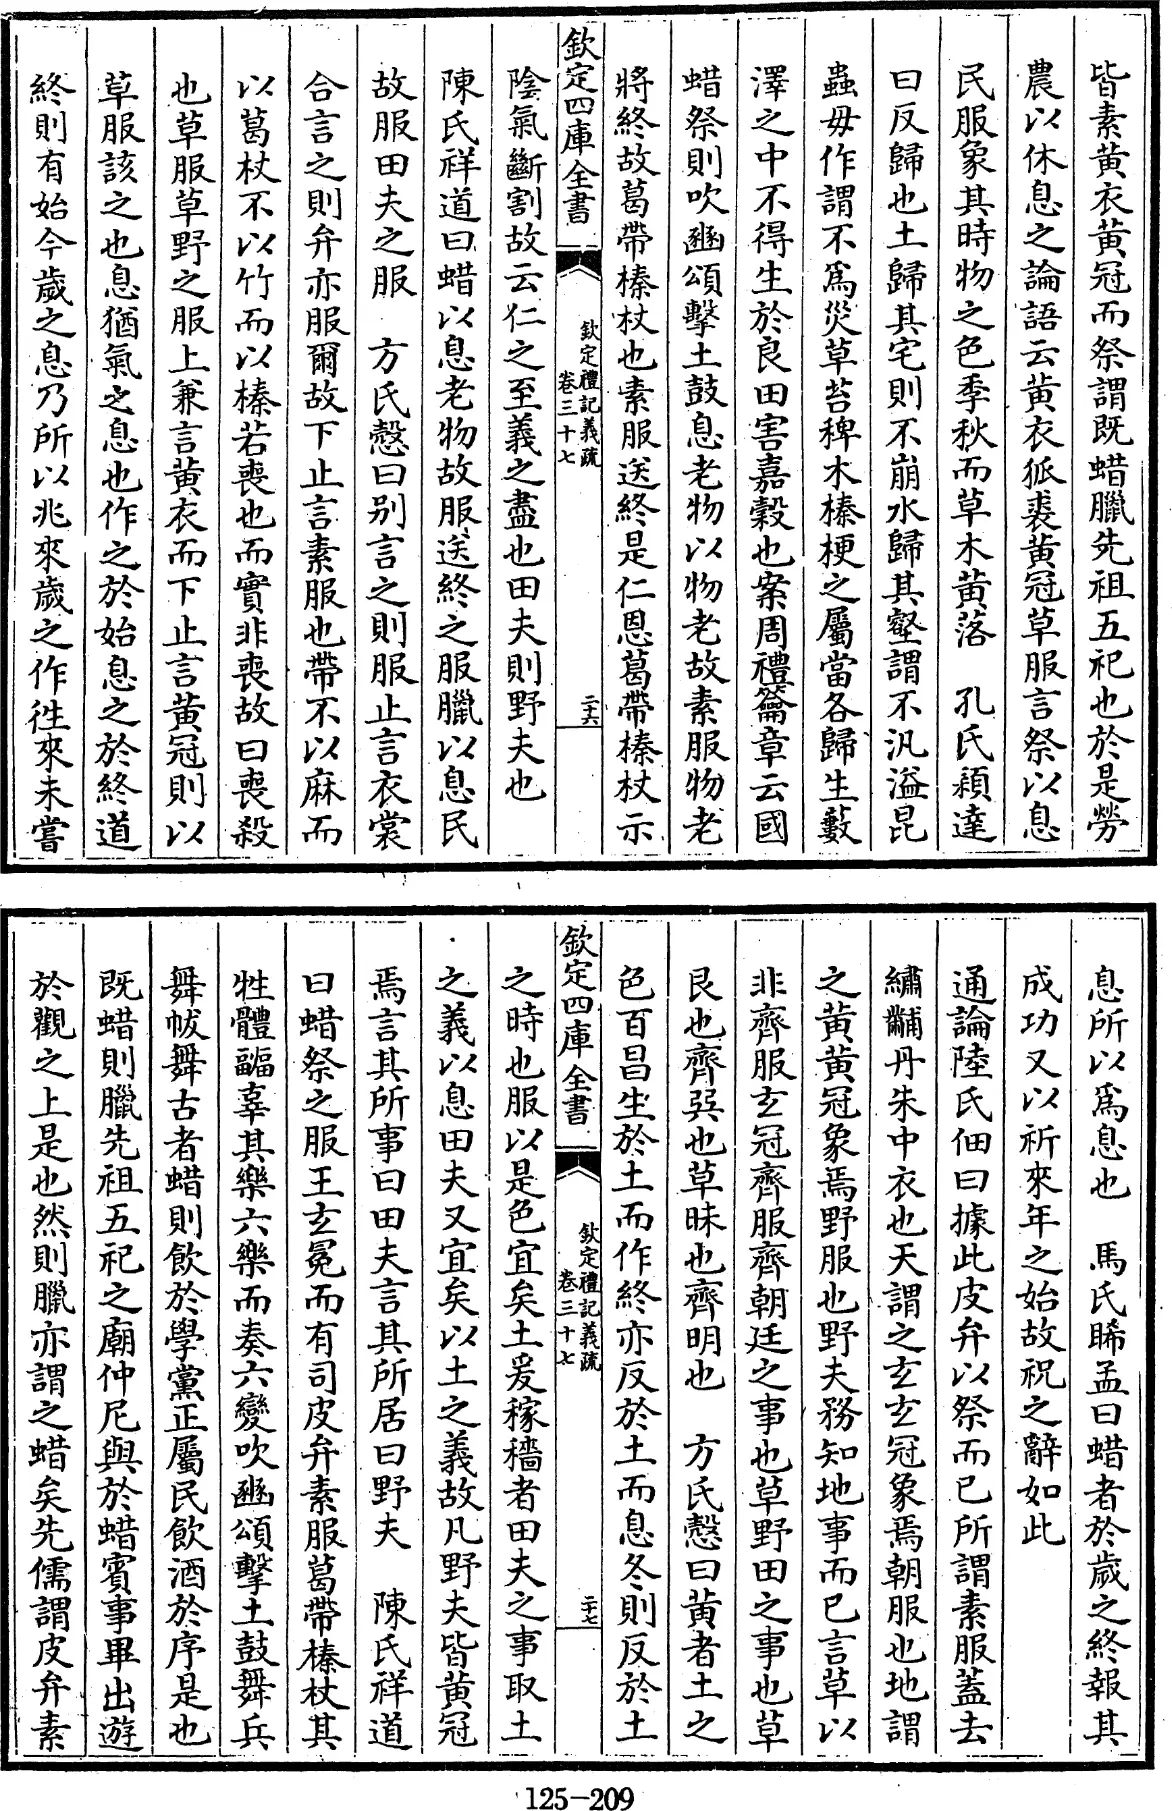 皆素黄衣黄冠而祭謂既蜡臘先祖五祀也於是勞
農以休息之論語云黄衣狐裘黄冠草服言祭以息
民服象其時物之色季秋而草木黄落　孔氏穎達
曰反歸也土歸其宅則不崩水歸其壑謂不汎溢昆
蟲毋作謂不為災草苔稗木榛梗之屬當各歸生藪
澤之中不得生於良田害嘉穀也案周禮籥章云國
蜡祭則吹豳頌擊土鼓息老物以物老故素服物老
將終故葛帶榛杖也素服送終是仁恩葛帶榛杖示
欽定四庫全書
欽定禮記義疏
卷三十七
二十六
陰氣斷割故云仁之至義之盡也田夫則野夫也
陳氏祥道曰蜡以息老物故服送終之服臘以息民
故服田夫之服　方氏慤曰别言之則服止言衣裳
合言之則弁亦服爾故下止言素服也帶不以麻而
以葛杖不以竹而以榛若喪也而實非喪故曰喪殺
也草服草野之服上兼言黄衣而下止言黄冠則以
草服該之也息猶氣之息也作之於始息之於終道
終則有始今歲之息乃所以兆來歲之作徃來未嘗
息所以為息也　馬氏睎孟曰蜡者於歲之終報其
成功又以祈來年之始故祝之辭如此
通論陸氏佃曰據此皮弁以祭而已所謂素服蓋去
繡黼丹朱中衣也天謂之玄玄冠象焉朝服也地謂
之黄黄冠象焉野服也野夫務知地事而已言草以
非齊服玄冠齊服齊朝廷之事也草野田之事也草
艮也齊巽也草昧也齊明也　方氏慤曰黄者土之
色百昌生於土而作終亦反於土而息冬則反於土
欽定四庫全書
欽定禮記義疏
卷三十七
二十七
之時也服以是色宜矣土爰稼穡者田夫之事取土
之義以息田夫又宜矣以土之義故凡野夫皆黄冠
焉言其所事曰田夫言其所居曰野夫　陳氏祥道
曰蜡祭之服王玄冕而有司皮弁素服葛帶榛杖其
牲體疈辜其樂六樂而奏六變吹豳頌擊土鼓舞兵
舞帗舞古者蜡則飲於學黨正屬民飲酒於序是也
既蜡則臘先祖五祀之廟仲尼與於蜡賓事畢出遊
於觀之上是也然則臘亦謂之蜡矣先儒謂皮弁素
125-209